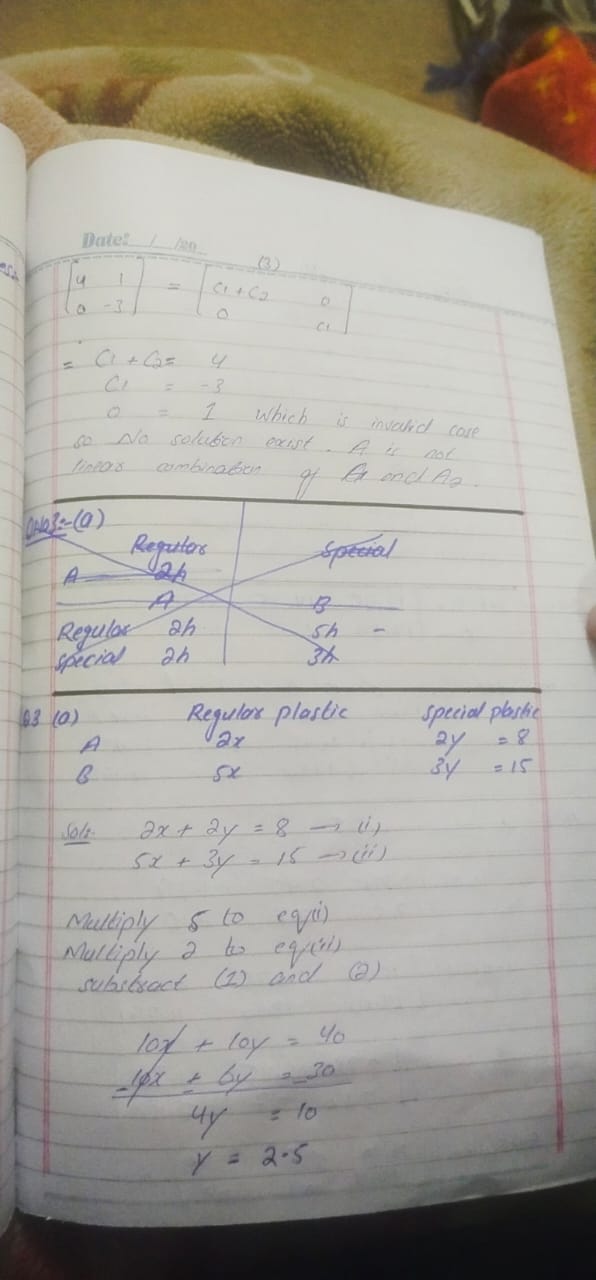 Date: / /20
(3)
[4 1] = [C1 + C2 0]
[0 -3] [0 C1]
= C1 + C2 = 4
C1 = -3
0 = 1 which is invalid case
so No solution exist. A is not
linear combination of A1 and A2.
QNo3:-(a)
Regular Special
A 2h
A B
Regular 2h 5h -
special 2h 3h
Q3 (a) Regular plastic special plastic
A 2x 2y = 8
B 5x 3y = 15
Sol: 2x + 2y = 8 → (i)
5x + 3y = 15 → (ii)
Multiply 5 to eq(i)
Multiply 2 to eq(ii)
substract (1) and (2)
10x + 10y = 40
-10x ± 6y = -30
4y = 10
y = 2.5